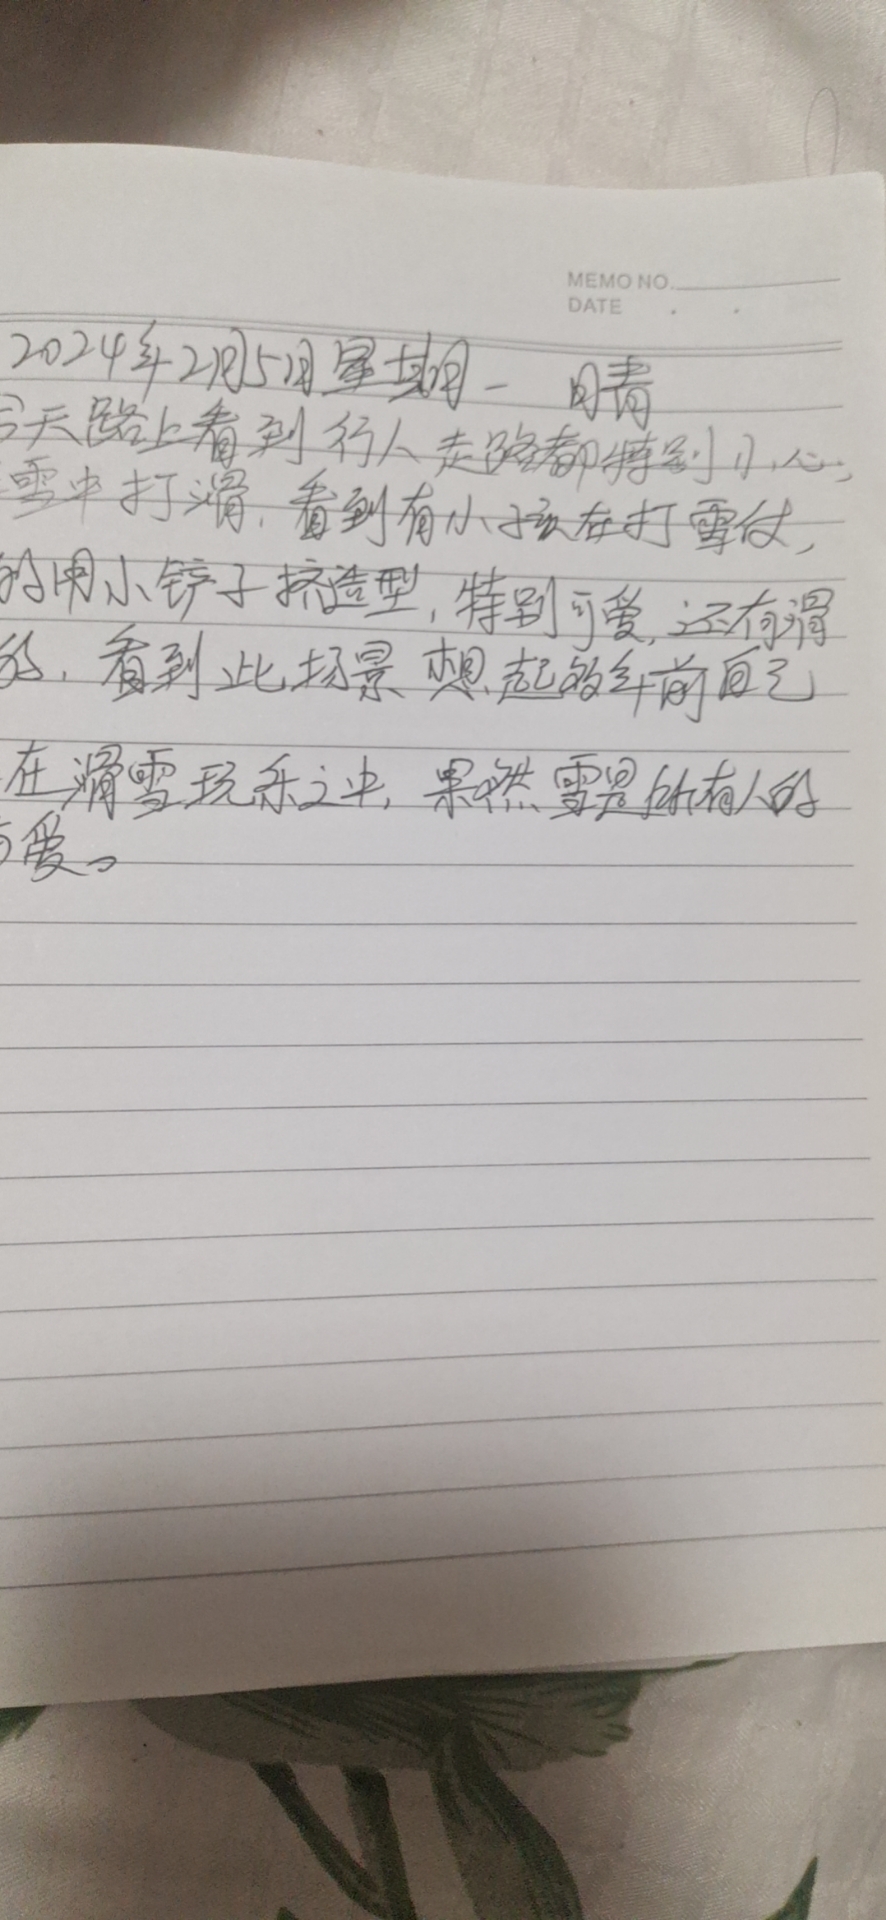 MEMO NO.
DATE . .
2024年2月5日星期一 晴
今天路上看到行人走路都特别小心,
雪中打滑,看到有小孩在打雪仗,
的用小铲子挤造型,特别可爱,还有滑
的,看到此场景想起数年前自己
在滑雪玩乐之中,果然雪是所有人的
爱。